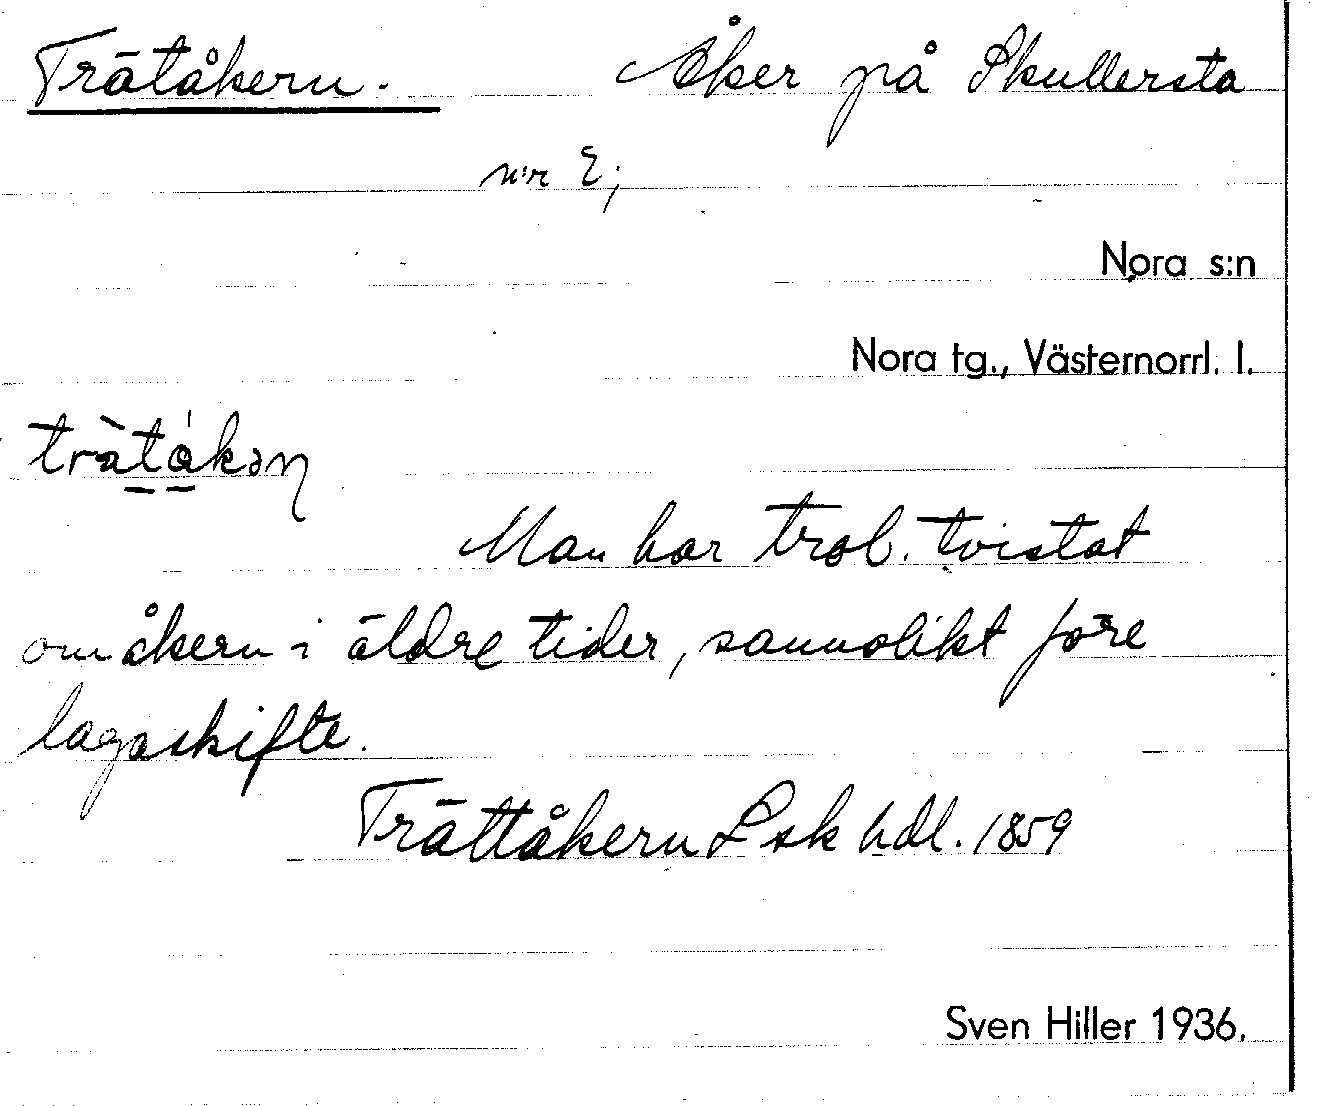 Trätåkern. Åker på Skullersta
n:r 2;
Nora s:n
Nora tg., Västernorrl. l.
trä̀tåkən
Man har trol. tvistat
om åkern i äldre tider, sannolikt före
lagaskifte.
Trättåkern Lsk hdl. 1859
Sven Hiller 1936.